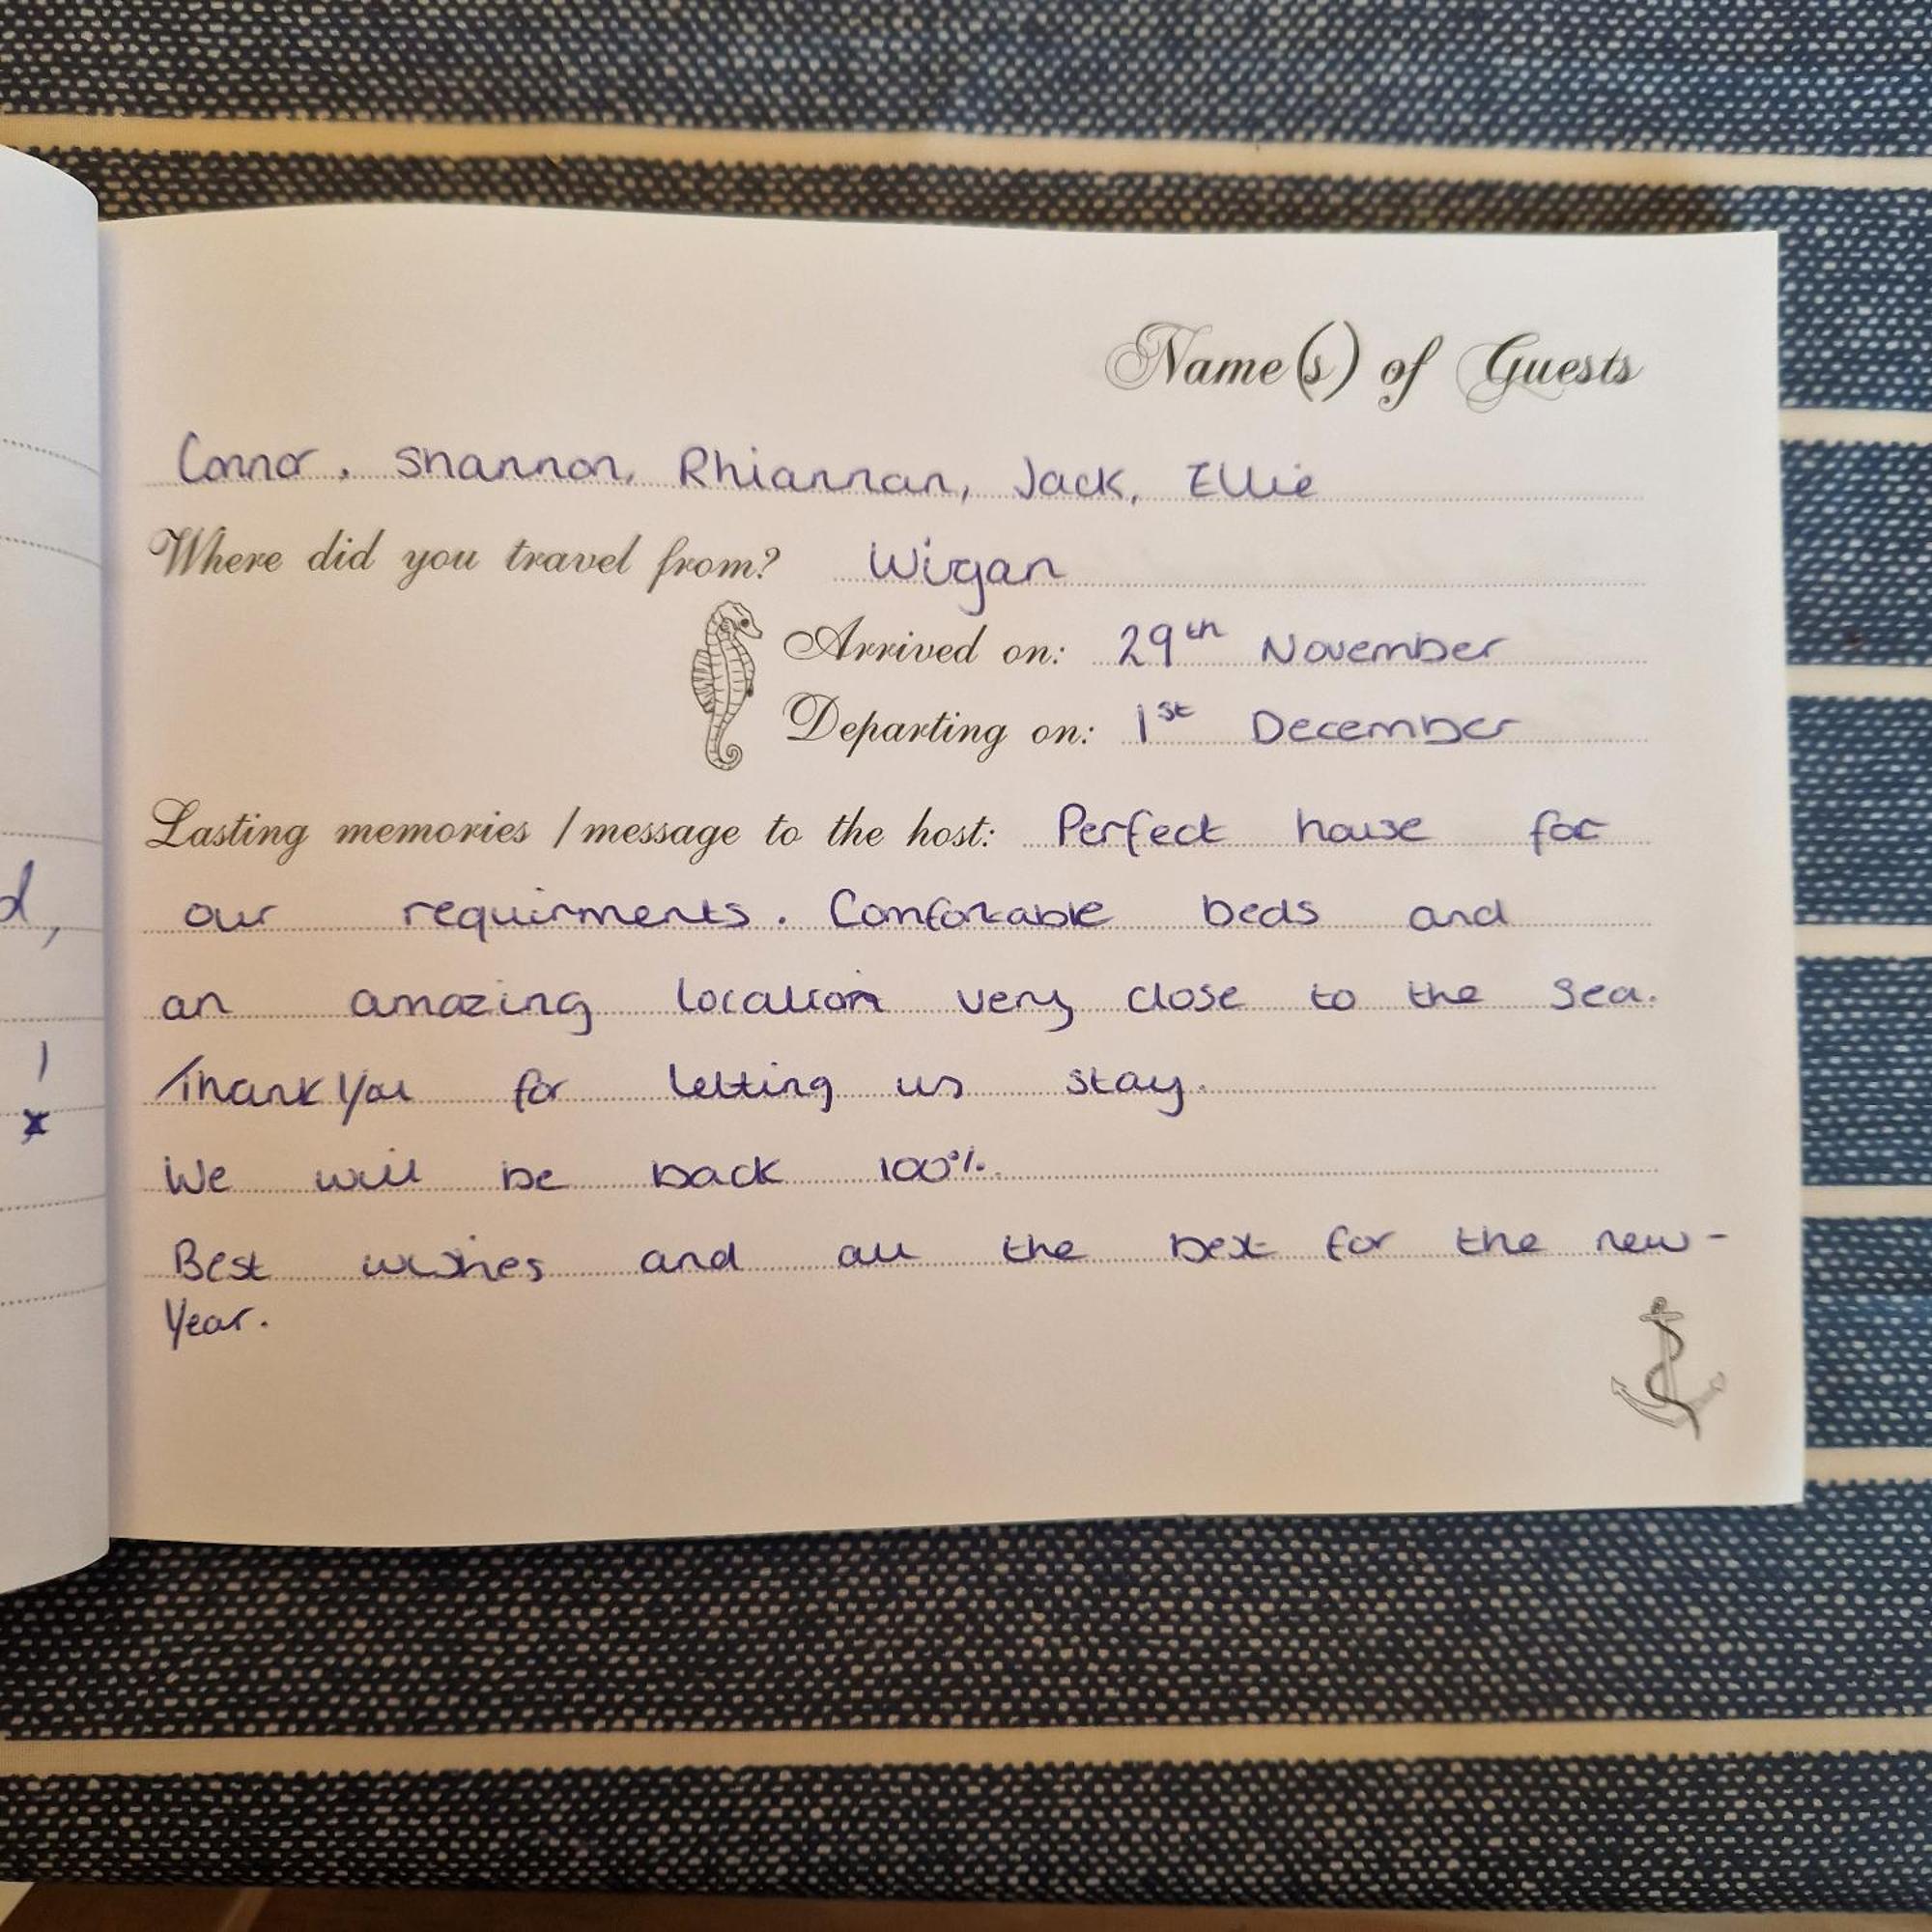 Name(s) of Guests
Connor, Shannon, Rhiannan, Jack, Ellie
Where did you travel from? Wigan
Arrived on: 29th November
Departing on: 1st December
Lasting memories / message to the host: Perfect house for
our requirments. Comfortable beds and
an amazing location very close to the sea.
Thank You for letting us stay.
We will be back 100%.
Best wishes and all the best for the new-
Year.
d,
!
x